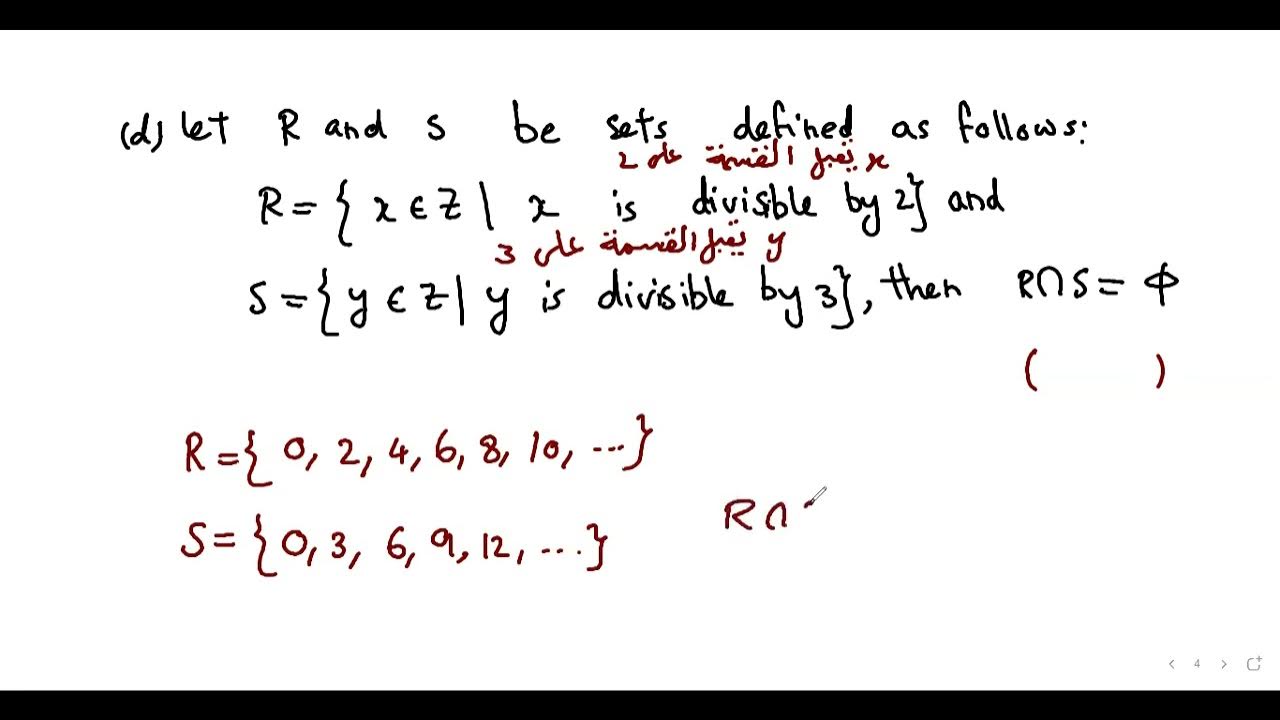 (d) let R and S be sets defined as follows:
x يقبل القسمة على 2
R = { x ∈ Z | x is divisible by 2} and
y يقبل القسمة على 3
S = { y ∈ Z | y is divisible by 3}, then R∩S = ϕ
( )
R = { 0, 2, 4, 6, 8, 10, ...}
S = {0, 3, 6, 9, 12, ...}
R ∩
< 4 >